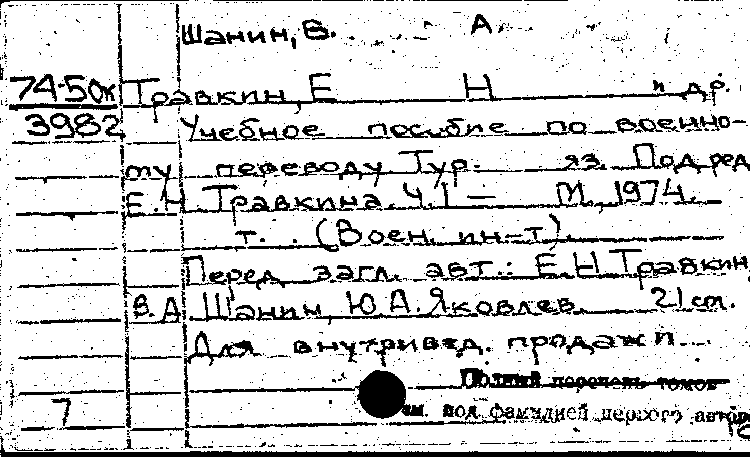 Шанин, В. А
74-50к Травкин, Е Н и др.
3982 Учебное пособие по военно-
му переводу Тур. яз. Под ред
Е. Н Травкина. Ч. I — М., 1974.
т. . (Воен. ин-т).
Перед загл. авт.: Е. Н Травкин,
В. А Шанин, Ю. А. Яковлев. 21 см.
Для внутривед. продажи
Полный перечень томов
7 см. под фамилией первого автора